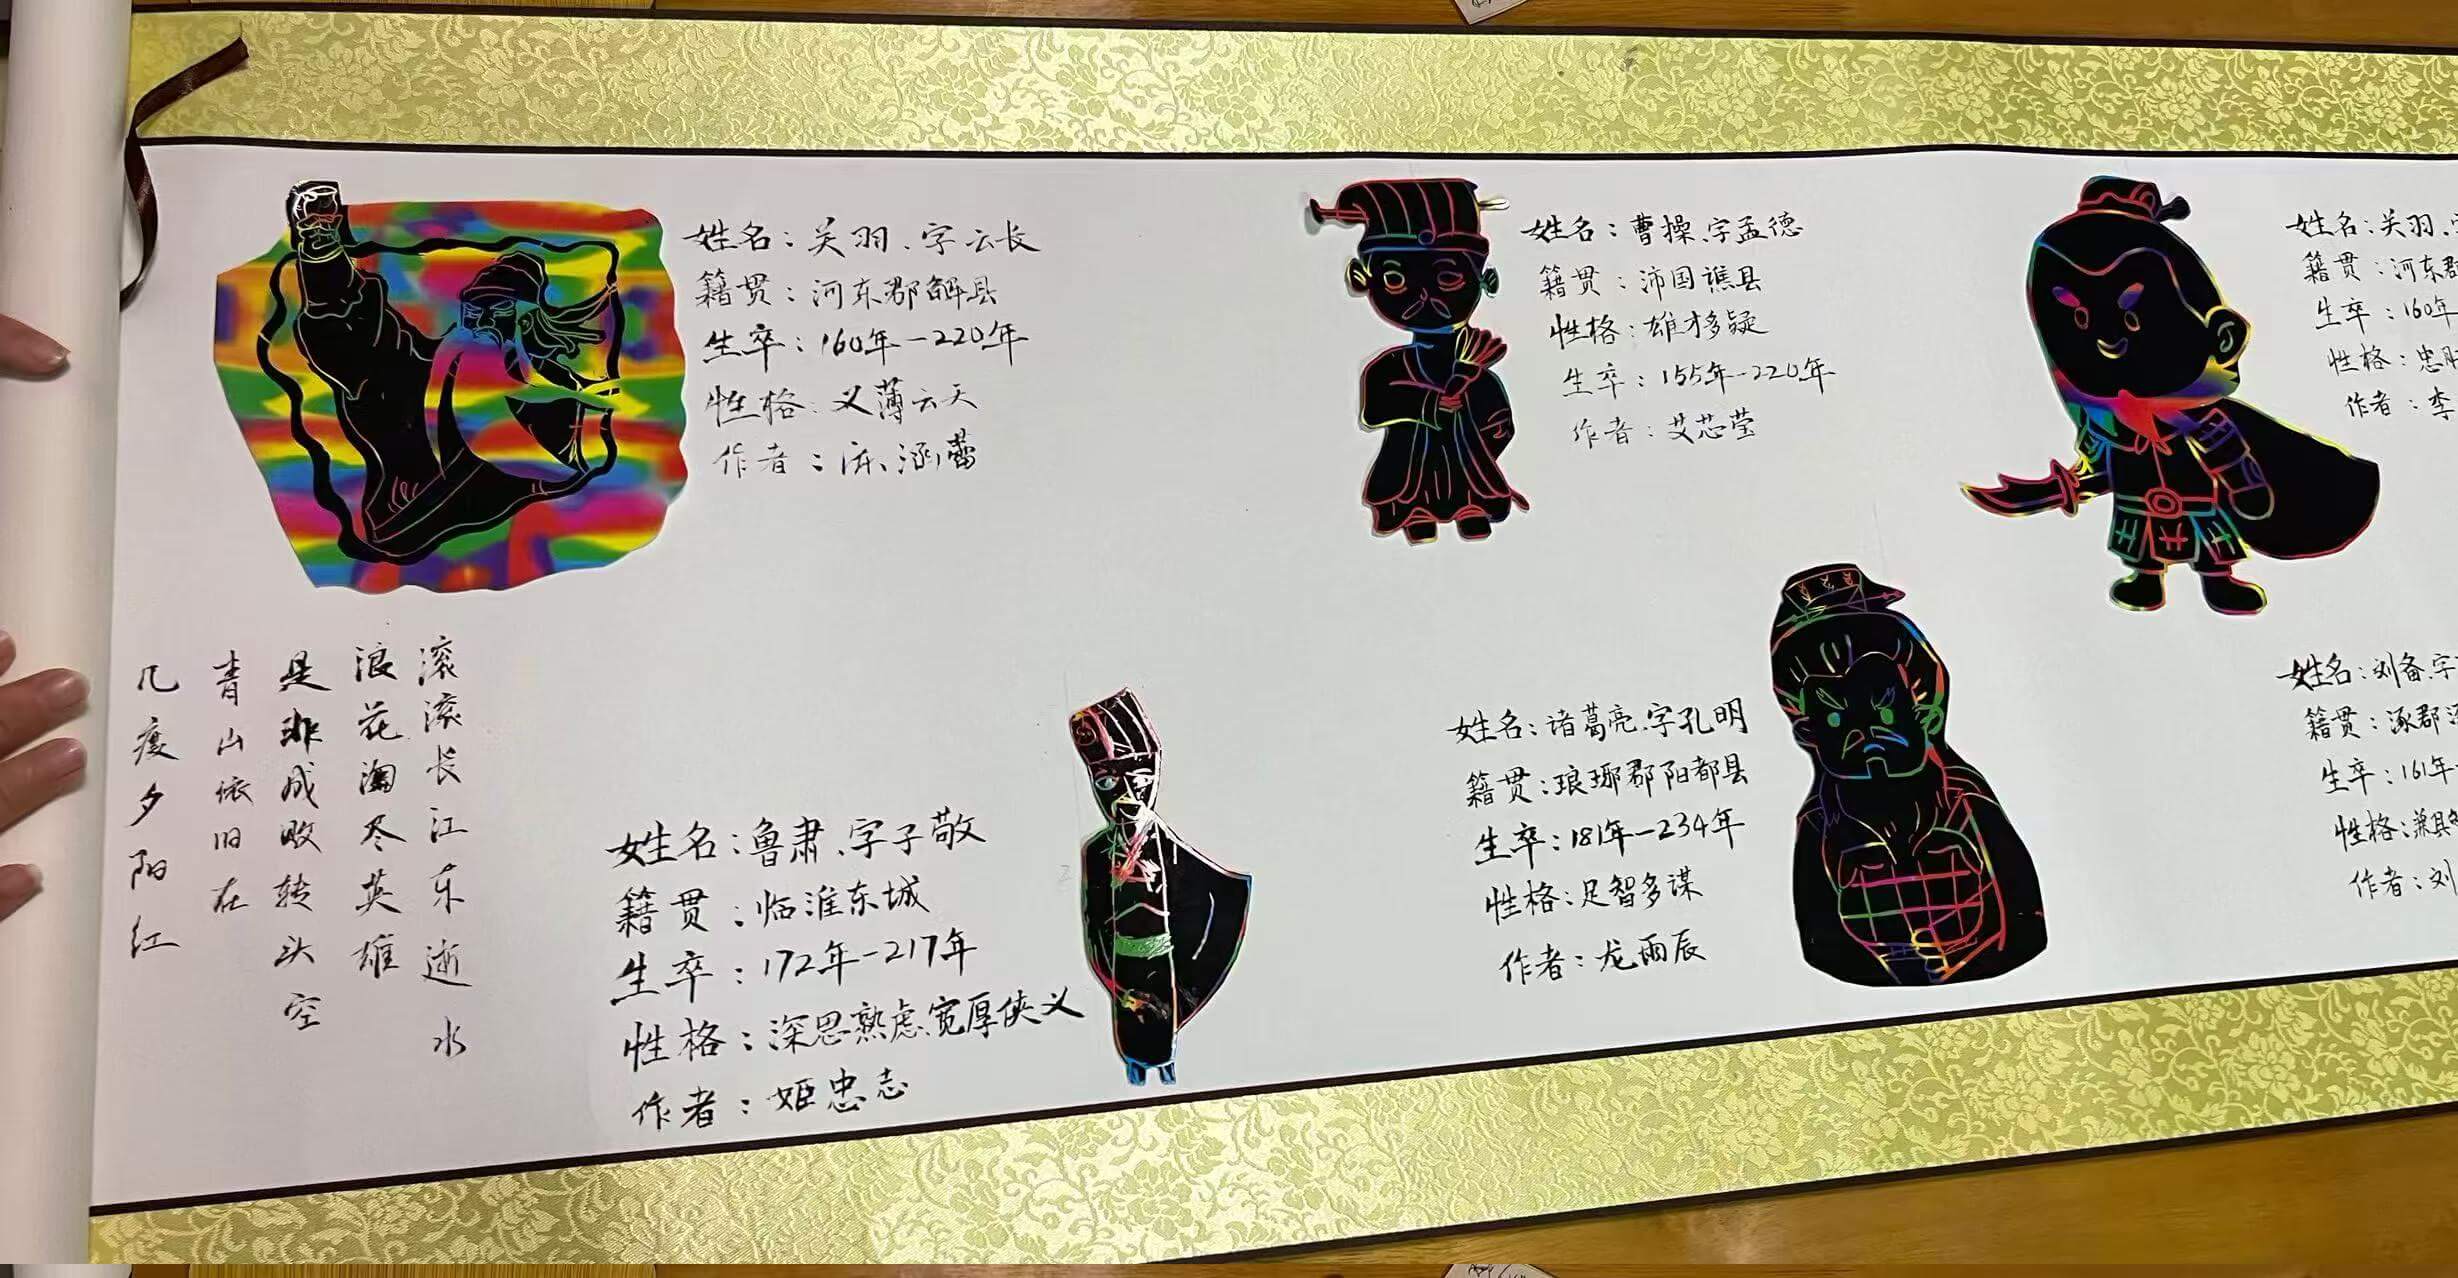 姓名：关羽、字云长
籍贯：河东郡解县
生卒：160年-220年
性格：义薄云天
作者：涵蕾
姓名：曹操、字孟德
籍贯：沛国谯县
性格：雄才多疑
生卒：155年-220年
作者：艾芯莹
姓名：关羽、
籍贯：河东郡
生卒：160年
性格：忠
作者：李
滚滚长江东逝水
浪花淘尽英雄
是非成败转头空
青山依旧在
几度夕阳红
姓名：鲁肃、字子敬
籍贯：临淮东城
生卒：172年-217年
性格：深思熟虑、宽厚侠义
作者：姬忠志
姓名：诸葛亮、字孔明
籍贯：琅琊郡阳都县
生卒：181年-234年
性格：足智多谋
作者：龙雨辰
姓名：刘备、字
籍贯：涿郡涿
生卒：161年-
性格：兼具
作者：刘